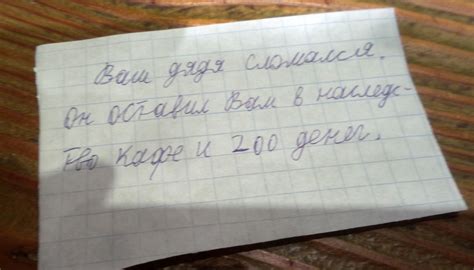 Ваш дядя сломался.
Он оставил Вам в наследс-
тво кафе и 200 денег.